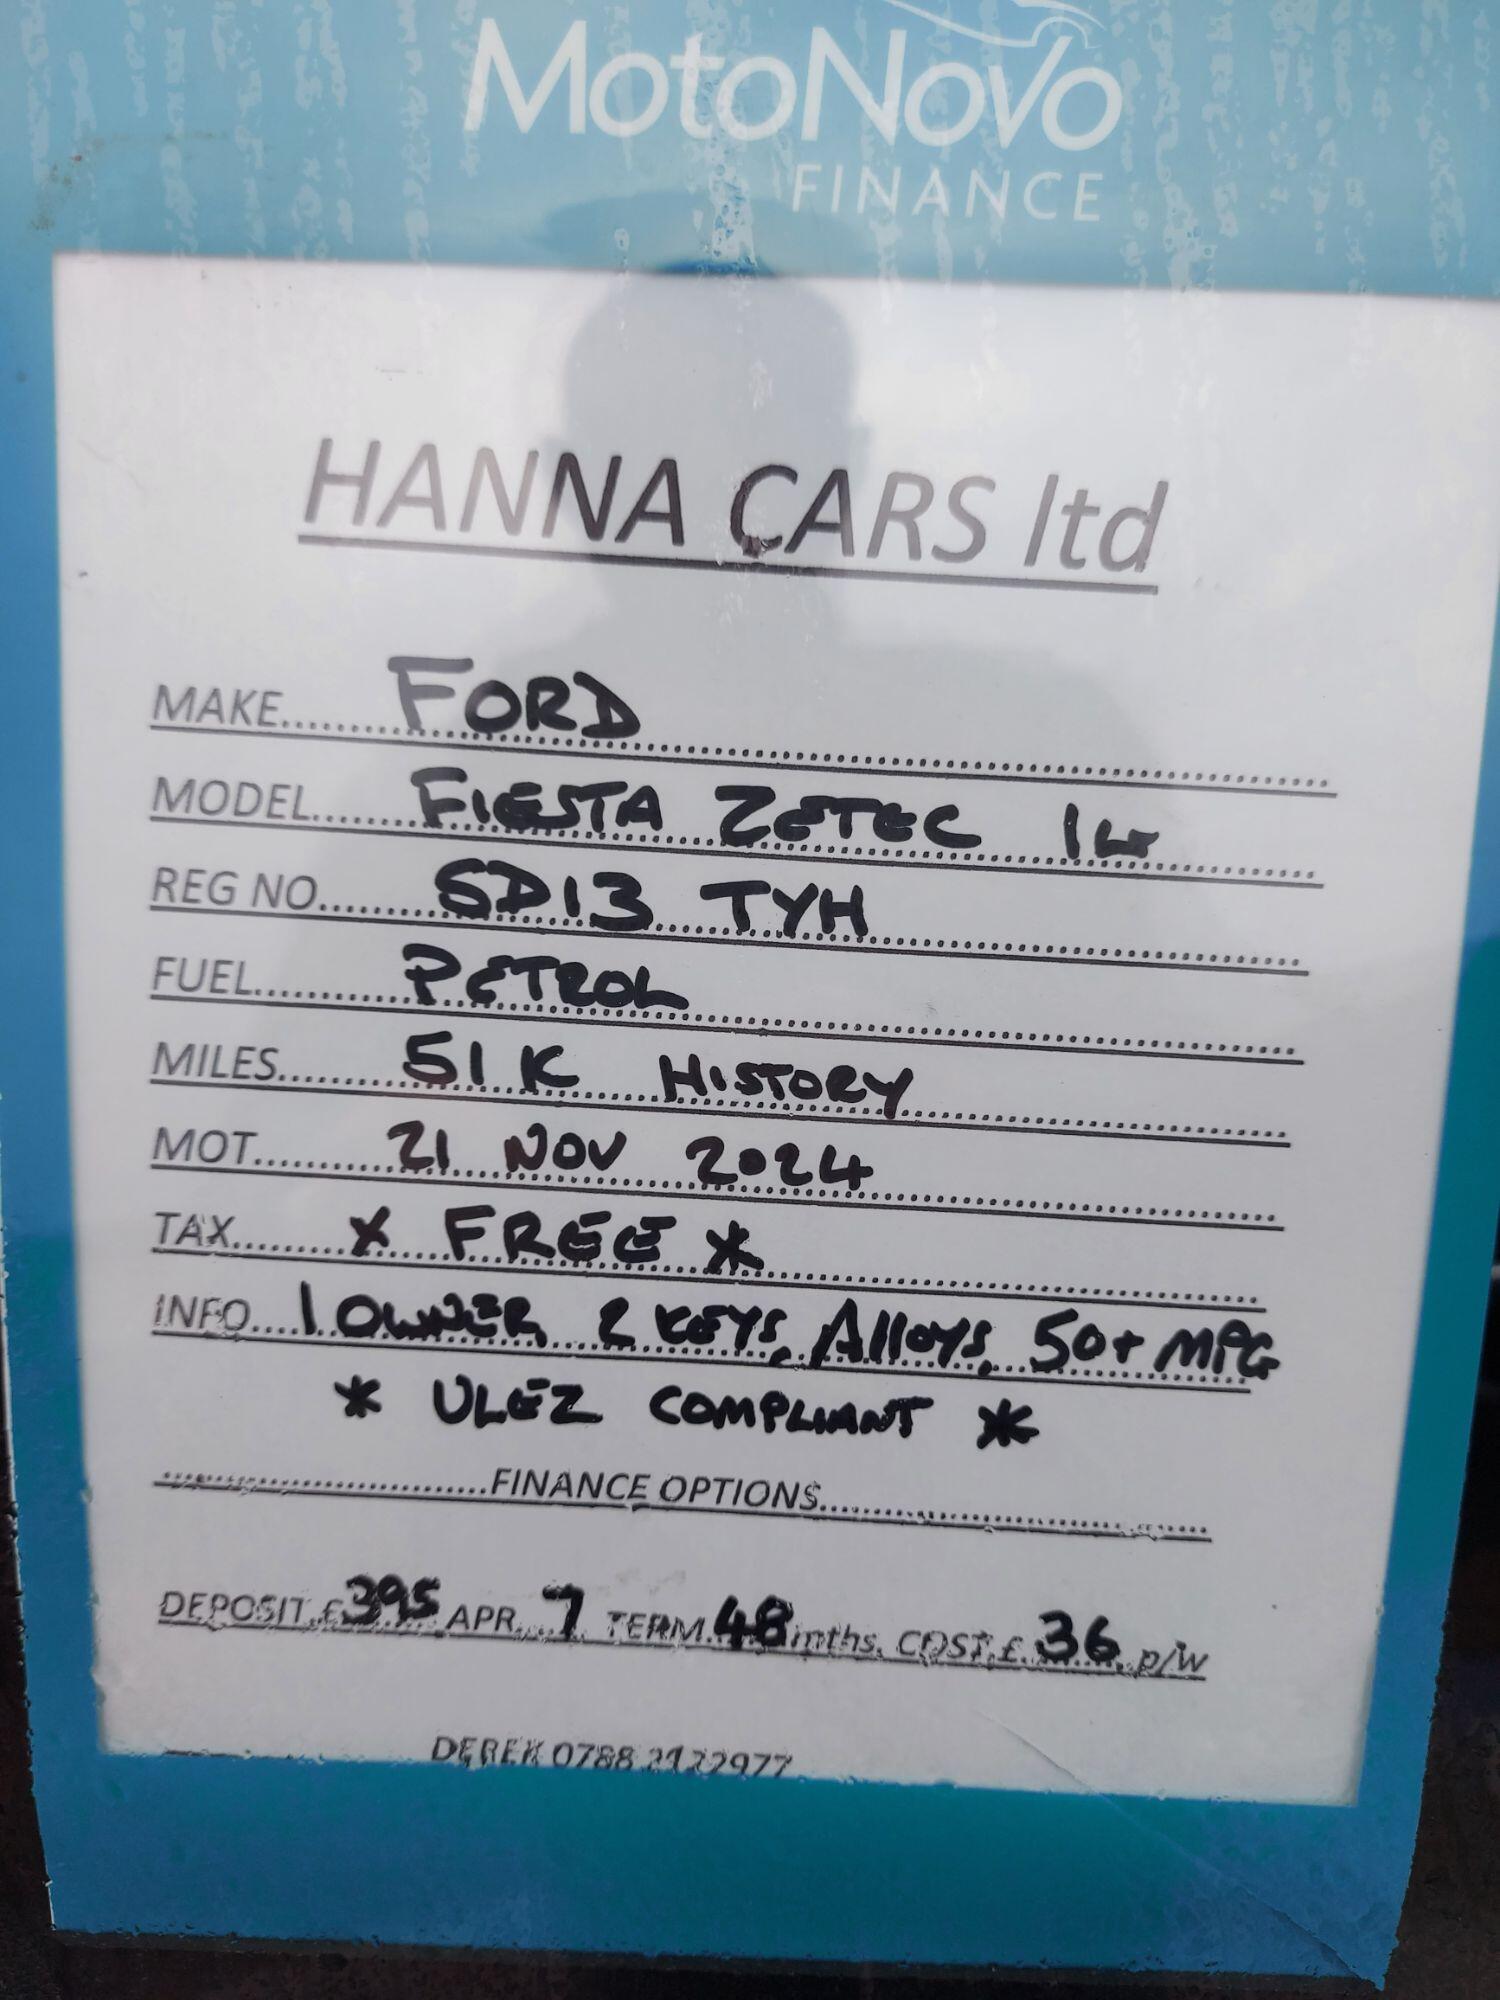 MotoNovo
FINANCE
HANNA CARS ltd
MAKE.....FORD
MODEL.....FIESTA ZETEC 1Ltr
REG NO.....SD13 TYH
FUEL.....PETROL
MILES.....51K HISTORY
MOT.....21 NOV 2024
TAX.....* FREE *
INFO....1 OWNER 2 KEYS, Alloys, 50+ MPG
* ULEZ COMPLIANT *
.....FINANCE OPTIONS.....
DEPOSIT.£395 APR...7 TERM.48mths. COST.£.36 p/w
DEREK 0788 2122977